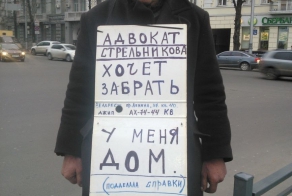 АДВОКАТ
СТРЕЛЬНИКОВА
ХОЧЕТ
ЗАБРАТЬ
У МЕНЯ
ДОМ.
(ПОДДЕЛАЛА СПРАВКИ)
СБЕРБАНК